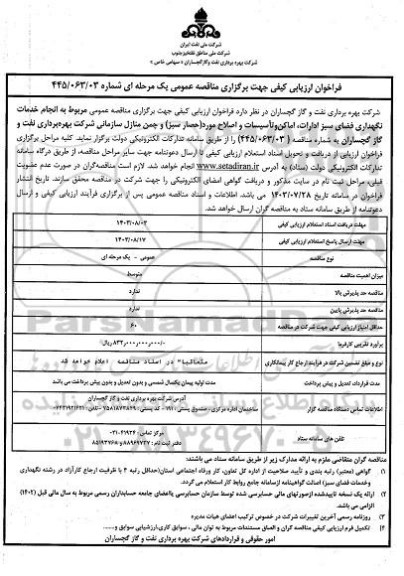 شرکت ملی نفت ایران
شرکت ملی مناطق نفتخیز جنوب
شرکت بهره برداری نفت و گاز گچساران « سهامی خاص »
فراخوان ارزیابی کیفی جهت برگزاری مناقصه عمومی یک مرحله ای شماره ۴۴۵/۰۶۳/۰۳
شرکت بهره برداری نفت و گاز گچساران در نظر دارد فراخوان ارزیابی کیفی جهت برگزاری مناقصه عمومی مربوط به انجام خدمات
نگهداری فضای سبز ادارات، اماکن وتأسیسات و اصلاح مورد(حصار سبز) و چمن منازل سازمانی شرکت بهره‌برداری نفت و
گاز گچساران به شماره مناقصه ( ۴۴۵/۰۶۳/۰۳) را از طریق سامانه تدارکات الکترونیکی دولت برگزار نماید. کلیه مراحل برگزاری
فراخوان ارزیابی از دریافت و تحویل اسناد استعلام ارزیابی کیفی تا ارسال دعوتنامه جهت سایر مراحل مناقصه، از طریق درگاه سامانه
تدارکات الکترونیکی دولت (ستاد) به آدرس www.setadiran.ir انجام خواهد شد. لازم است مناقصه‌گران در صورت عدم عضویت
قبلی، مراحل ثبت نام در سایت مذکور و دریافت گواهی امضای الکترونیکی را جهت شرکت در مناقصه محقق سازند. تاریخ انتشار
فراخوان در سامانه تاریخ ۱۴۰۳/۰۷/۲۸ می باشد. اطلاعات و اسناد مناقصه عمومی پس از برگزاری فرآیند ارزیابی کیفی و ارسال
دعوتنامه از طریق سامانه ستاد به مناقصه گران ارسال خواهد شد.
مهلت دریافت اسناد استعلام ارزیابی کیفی ۱۴۰۳/۰۸/۰۳
مهلت ارسال پاسخ استعلام ارزیابی کیفی ۱۴۰۳/۰۸/۱۷
نوع مناقصه عمومی - یک مرحله ای
میزان اهمیت مناقصه متوسط
مناقصه حد پذیرش بالا ندارد
مناقصه حد پذیرش پایین ندارد
حداقل امتیاز ارزیابی کیفی جهت شرکت در مناقصه ۶۰
برآورد تقریبی کارفرما
نوع و مبلغ تضمین شرکت در فرآیند ارجاع کار پیمانکاری متعاقبا" در اسناد مناقصه اعلام خواهد شد
مدت قرارداد، تعدیل و پیش پرداخت مدت اولیه پیمان یکسال شمسی و بدون تعدیل و بدون پیش پرداخت می باشد
اطلاعات تماس دستگاه مناقصه گزار آدرس شرکت بهره برداری نفت و گاز گچساران
تلفن های سامانه ستاد مرکز تماس: ۴۱۹۳۴-۰۲۱
دفتر ثبت نام: ۸۸۹۶۹۷۳۷ و ۸۵۱۹۳۷۶۸
مناقصه گران متقاضی ملزم به ارائه مدارک زیر از طریق سامانه ستاد می باشند:
۱) گواهی (معتبر) رتبه بندی و تأیید صلاحیت از اداره کل تعاون، کار ورفاه اجتماعی استان(حداقل رتبه ۴ با ظرفیت ارجاع کارآزاد در رشته نگهداری
وخدمات فضای سبز) اصالت گواهینامه ازسامانه جامع روابط کار استعلام می گردد.
۲) ارائه یک نسخه تاییدشده ازصورتهای مالی حسابرسی شده توسط سازمان حسابرسی یااعضای جامعه حسابداران رسمی مربوط به سال مالی قبل (۱۴۰۲)
الزامی می باشد.
۳) روزنامه رسمی آخرین تغییرات شرکت در خصوص ترکیب اعضای هیات مدیره
۴) تکمیل فرم ارزیابی کیفی مناقصه گران و الصاق مستندات مربوط به توان مالی ، سوابق کاری،ارزشیابی سوابق و......
امور حقوقی و قراردادهای شرکت بهره برداری نفت و گاز گچساران